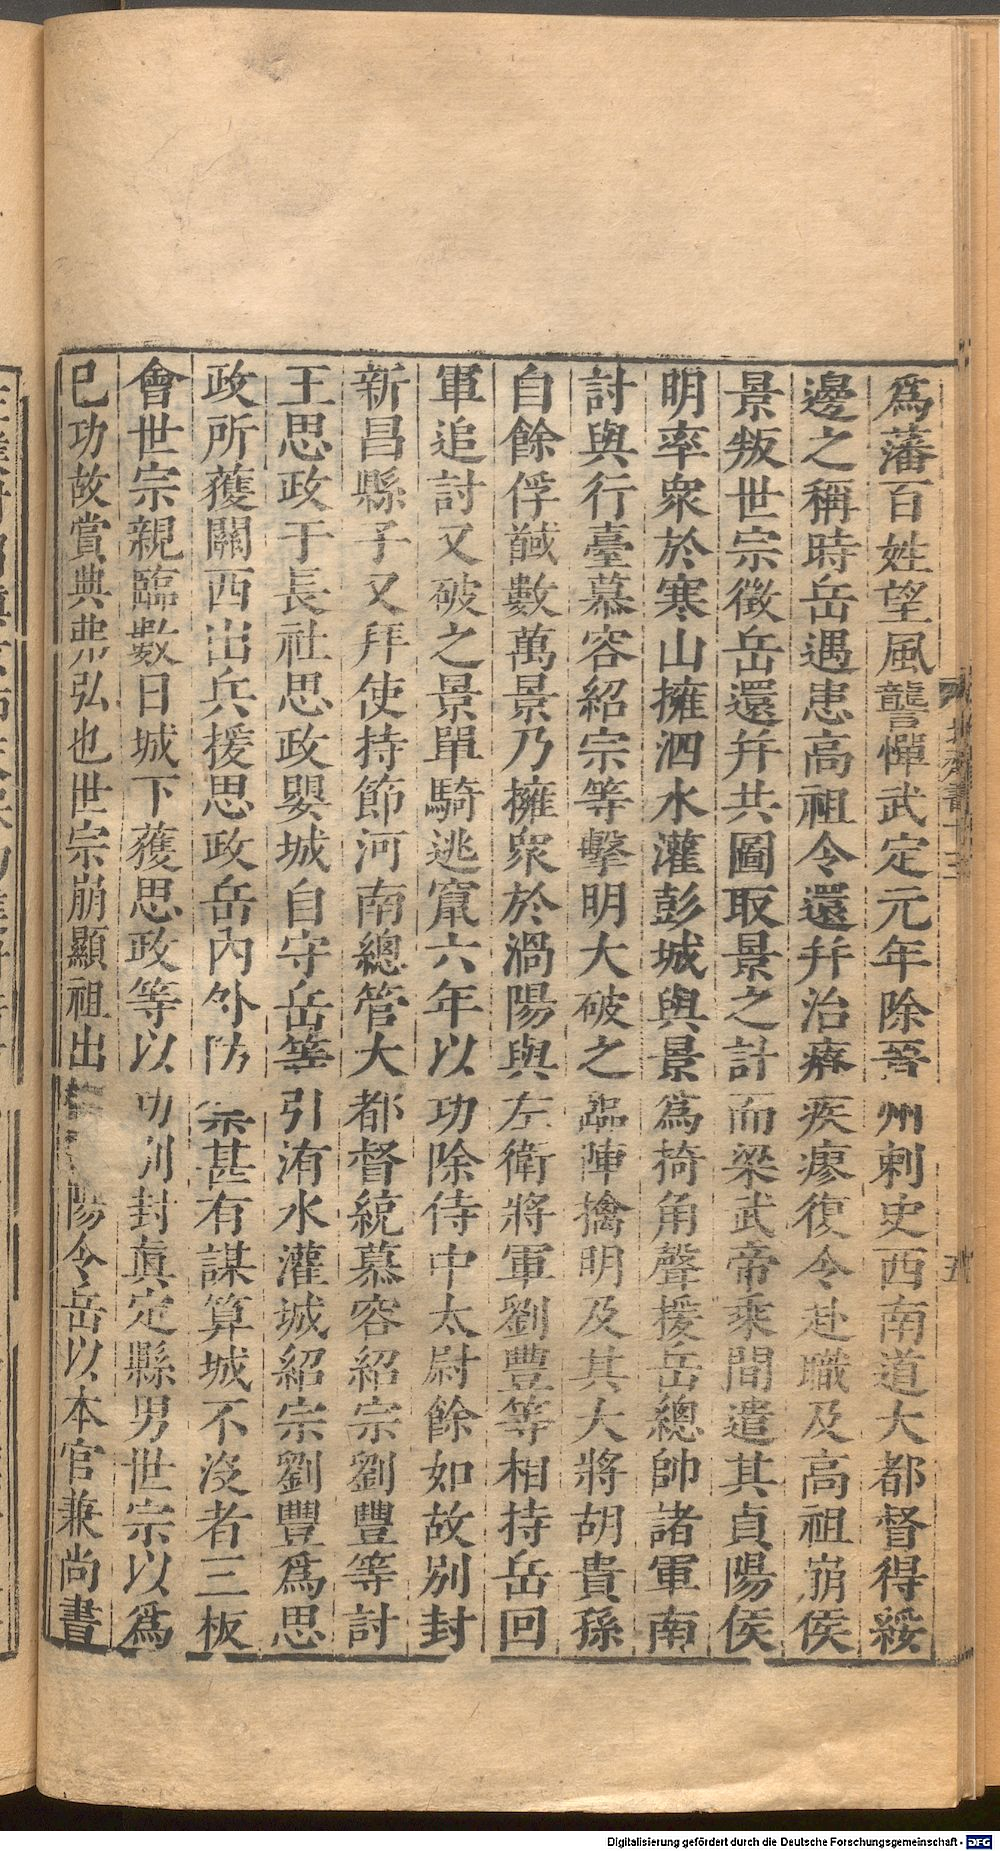 爲藩百姓望風讋憚武定元年除晉州刺史西南道大都督得綏
邊之稱時岳遇患高祖令還并治療疾瘳復令赴職及高祖崩侯
景叛世宗徵岳還并共圖取景之計而梁武帝乘間遣其貞陽侯
明率衆於寒山擁泗水灌彭城與景爲掎角聲援岳總帥諸軍南
討與行臺慕容紹宗等擊明大破之臨陣擒明及其大將胡貴孫
自餘俘馘數萬景乃擁衆於渦陽與左衛將軍劉豐等相持岳回
軍追討又破之景單騎逃竄六年以功除侍中太尉餘如故別封
新昌縣子又拜使持節河南總管大都督統慕容紹宗劉豐等討
王思政于長社思政嬰城自守岳等引洧水灌城紹宗劉豐爲思
政所獲關西出兵援思政岳內外防禦甚有謀算城不沒者三板
會世宗親臨數日城下獲思政等以功別封眞定縣男世宗以爲
己功故賞典弗弘也世宗崩顯祖出陽令岳以本官兼尚書
北齊書十三
五
Digitalisierung gefördert durch die Deutsche Forschungsgemeinschaft - DFG